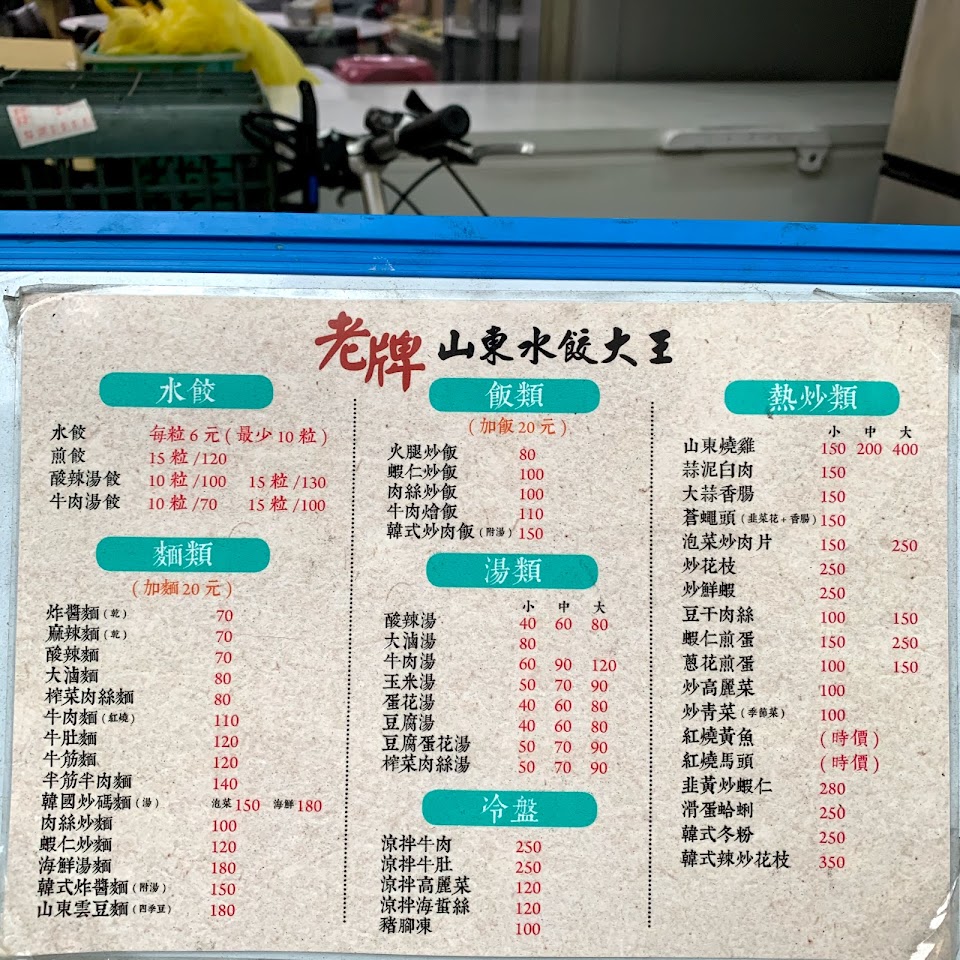 老牌 山東水餃大王
水餃
水餃 每粒6元(最少10粒)
煎餃 15粒/120
酸辣湯餃 10粒/100 15粒/130
牛肉湯餃 10粒/70 15粒/100
麵類
(加麵20元)
炸醬麵(乾) 70
麻辣麵(乾) 70
酸辣麵 70
大滷麵 80
榨菜肉絲麵 80
牛肉麵(紅燒) 110
牛肚麵 120
牛筋麵 120
半筋半肉麵 140
韓國炒碼麵(湯) 泡菜150 海鮮180
肉絲炒麵 100
蝦仁炒麵 120
海鮮湯麵 180
韓式炸醬麵(附湯) 150
山東雲豆麵(四季豆) 180
飯類
(加飯20元)
火腿炒飯 80
蝦仁炒飯 100
肉絲炒飯 100
牛肉燴飯 110
韓式炒肉飯(附湯) 150
湯類
小 中 大
酸辣湯 40 60 80
大滷湯 80
牛肉湯 60 90 120
玉米湯 50 70 90
蛋花湯 40 60 80
豆腐湯 40 60 80
豆腐蛋花湯 50 70 90
榨菜肉絲湯 50 70 90
冷盤
涼拌牛肉 250
涼拌牛肚 250
涼拌高麗菜 120
涼拌海蜇絲 120
豬腳凍 100
熱炒類
小 中 大
山東燒雞 150 200 400
蒜泥白肉 150
大蒜香腸 150
蒼蠅頭(韭菜花+香腸) 150
泡菜炒肉片 150 250
炒花枝 250
炒鮮蝦 250
豆干肉絲 100 150
蝦仁煎蛋 150 250
蔥花煎蛋 100 150
炒高麗菜 100
炒青菜(季節菜) 100
紅燒黃魚 (時價)
紅燒馬頭 (時價)
韭黃炒蝦仁 280
滑蛋蛤蜊 250
韓式冬粉 250
韓式辣炒花枝 350